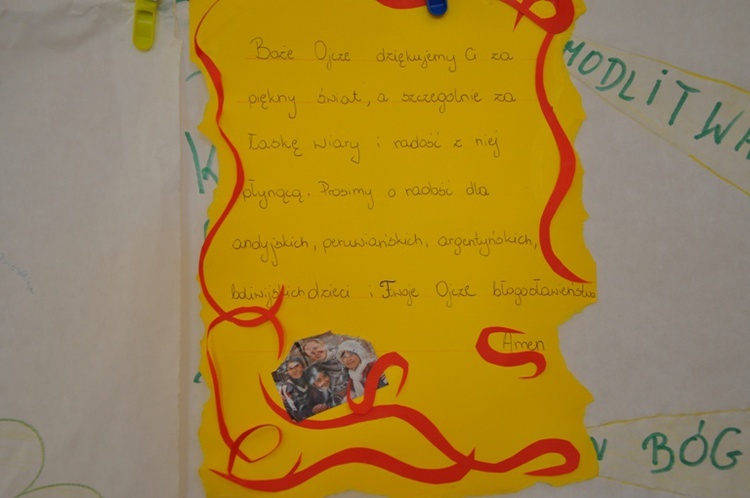 Boże Ojcze dziękujemy Ci za
piękny świat, a szczególnie za
łaskę wiary i radość z niej
płynącą. Prosimy o radość dla
andyjskich, peruwiańskich, argentyńskich,
boliwijskich dzieci i Twoje Ojcze błogosławieństwo
Amen
MODLITWA
K
BÓG